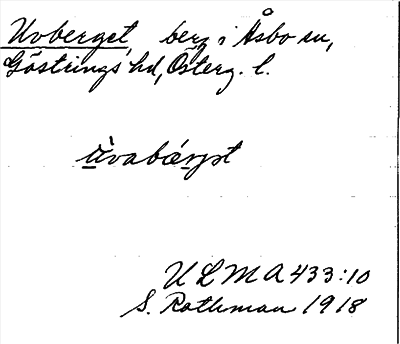 Uvberget, berg i Åsbo sn,
Göstrings hd, Österg. l.
ùvabærjət
ULMA 433:10
S. Rothman 1918